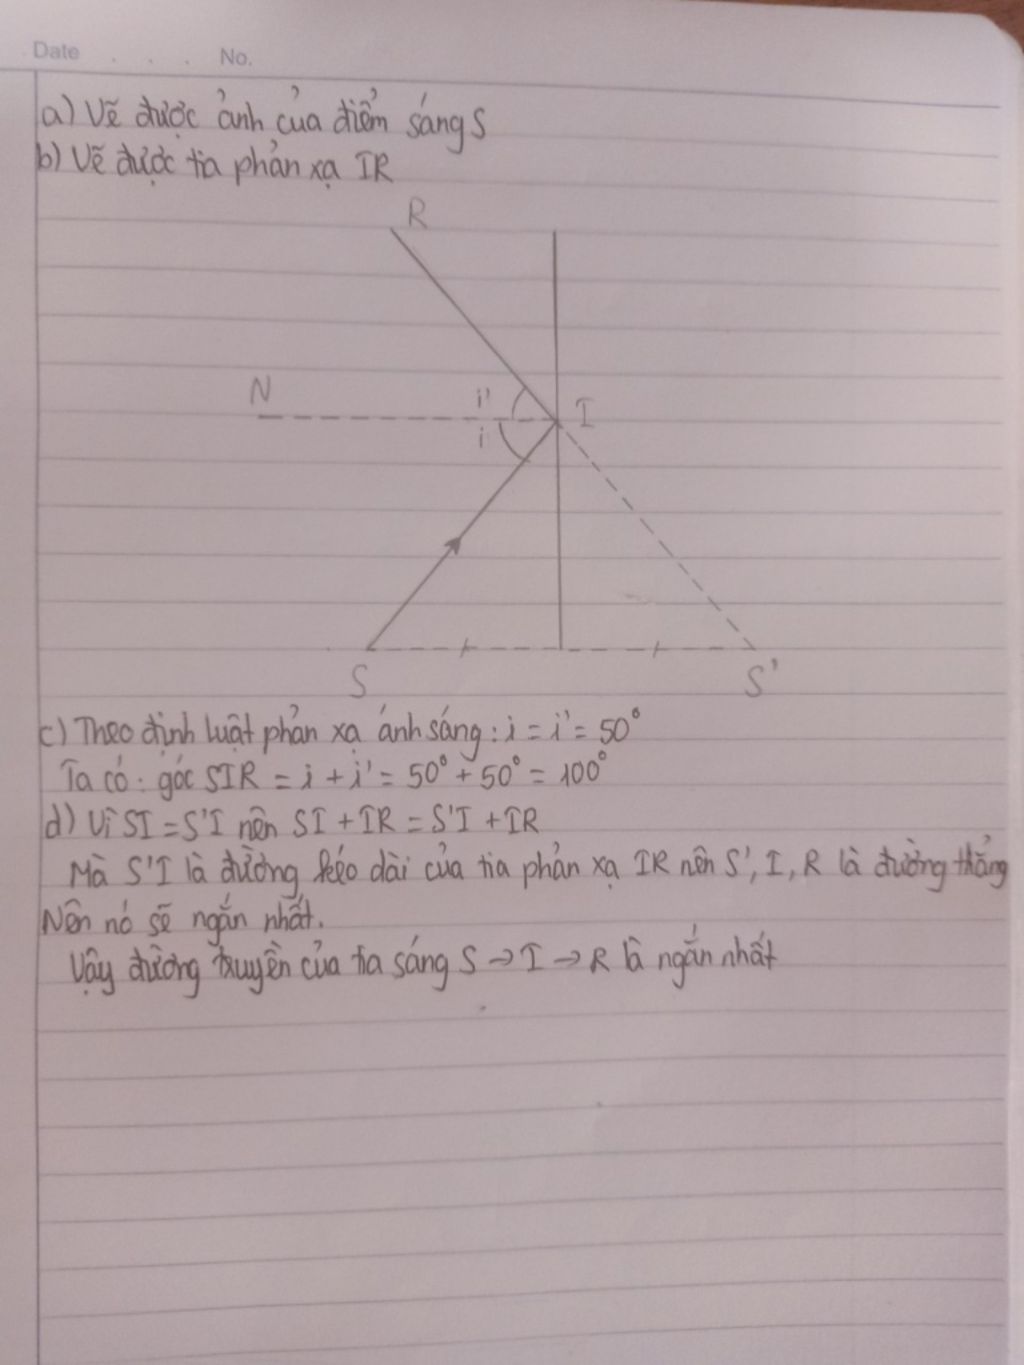 Date . . . No.
a) Vẽ được ảnh của điểm sáng S
b) Vẽ được tia phản xạ IR
R
N
i'
I
i
S
S'
c) Theo định luật phản xạ ánh sáng: i = i' = 50°
Ta có: góc SIR = i + i' = 50° + 50° = 100°
d) Vì SI = S'I nên SI + IR = S'I + IR
Mà S'I là đường kéo dài của tia phản xạ IR nên S', I, R là đường thẳng
Nên nó sẽ ngắn nhất.
Vậy đường truyền của tia sáng S → I → R là ngắn nhất